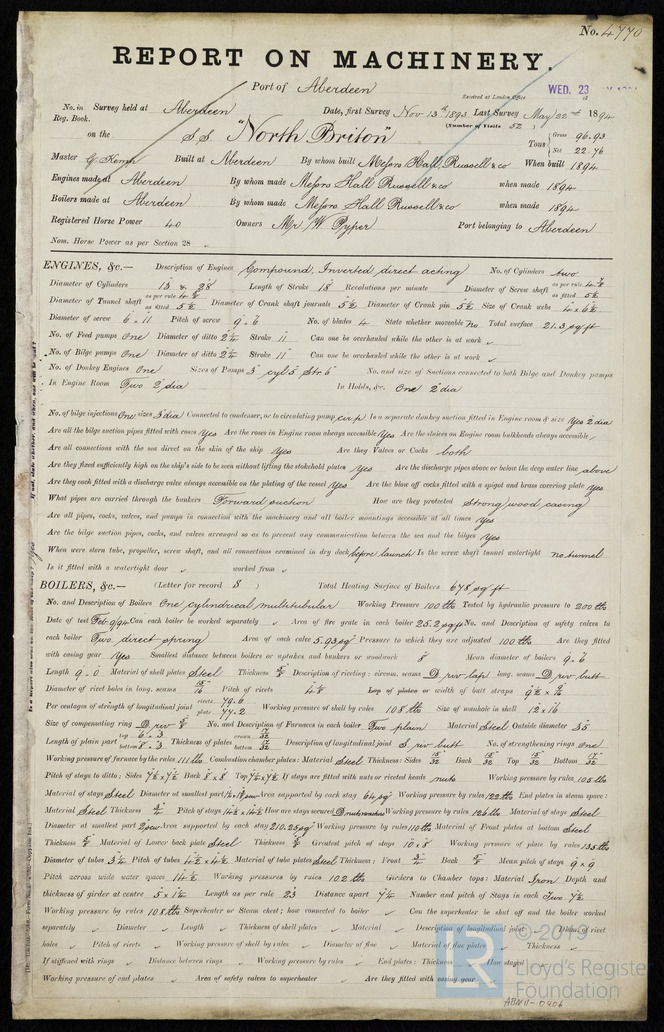 No. 4770
REPORT ON MACHINERY.
Port of Aberdeen
Received at London Office WED. 23
No. in Reg. Book. Survey held at Aberdeen Date, first Survey Nov 13th 1893 Last Survey May 22nd 1894
(Number of Visits 52)
on the S.S. "North Briton" Tons Gross 96.93 Net 22.76
Master Built at Aberdeen By whom built Messrs Hall, Russell & co When built 1894
Engines made at Aberdeen By whom made Messrs Hall Russell & co when made 1894
Boilers made at Aberdeen By whom made Messrs Hall Russell & co when made 1894
Registered Horse Power 40 Owners Mr W Pyper Port belonging to Aberdeen
Nom. Horse Power as per Section 28
ENGINES, &c.— Description of Engines Compound, Inverted direct acting No. of Cylinders two
Diameter of Cylinders 13 & 28 Length of Stroke 18 Revolutions per minute Diameter of Screw shaft as per rule as fitted
Diameter of Tunnel shaft as per rule as fitted Diameter of Crank shaft journals 5½ Diameter of Crank pin 5½ Size of Crank webs
Diameter of screw 6.11 Pitch of screw 9.6 No. of blades 4 State whether moveable no Total surface 21.3 sq ft
No. of Feed pumps One Diameter of ditto 2¼ Stroke 11 Can one be overhauled while the other is at work
No. of Bilge pumps One Diameter of ditto 2¼ Stroke 11 Can one be overhauled while the other is at work
No. of Donkey Engines One Sizes of Pumps 3" cyl 5 Str 6" No. and size of Suctions connected to both Bilge and Donkey pumps
In Engine Room Two 2" dia In Holds, &c. One 2" dia
No. of bilge injections One sizes 3 dia Connected to condenser, or to circulating pump cir p Is a separate donkey suction fitted in Engine room & size Yes 2 dia
Are all the bilge suction pipes fitted with roses Yes Are the roses in Engine room always accessible Yes Are the sluices on Engine room bulkheads always accessible
Are all connections with the sea direct on the skin of the ship Yes Are they Valves or Cocks both
Are they fixed sufficiently high on the ship's side to be seen without lifting the stokehold plates Yes Are the discharge pipes above or below the deep water line above
Are they each fitted with a discharge valve always accessible on the plating of the vessel Yes Are the blow off cocks fitted with a spigot and brass covering plate Yes
What pipes are carried through the bunkers Forward suction How are they protected Strong wood casing
Are all pipes, cocks, valves, and pumps in connection with the machinery and all boiler mountings accessible at all times Yes
Are the bilge suction pipes, cocks, and valves arranged so as to prevent any communication between the sea and the bilges Yes
When were stern tube, propeller, screw shaft, and all connections examined in dry dock before launch Is the screw shaft tunnel watertight no tunnel
Is it fitted with a watertight door worked from
BOILERS, &c.— (Letter for record S) Total Heating Surface of Boilers 678 sq ft
No. and Description of Boilers One cylindrical multitubular Working Pressure 100 lbs Tested by hydraulic pressure to 200 lbs
Date of test Can each boiler be worked separately Area of fire grate in each boiler 25.2 sq ft No. and Description of safety valves to
each boiler Two direct spring Area of each valve 5.93 sq" Pressure to which they are adjusted 100 lbs Are they fitted
with easing gear Yes Smallest distance between boilers or uptakes and bunkers or woodwork 8 Mean diameter of boilers 9.6
Length 9.0 Material of shell plates Steel Thickness Description of riveting: circum. seams D riv lap long. seams D riv butt
Diameter of rivet holes in long. seams 15/16 Pitch of rivets Lap of plates or width of butt straps
Per centages of strength of longitudinal joint rivets 79.6 plate 77.2 Working pressure of shell by rules 108 lbs Size of manhole in shell 12 x 16
Size of compensating ring No. and Description of Furnaces in each boiler Two plain Material Steel Outside diameter 35
Length of plain part top 6.3 bottom 8.3 Thickness of plates crown bottom Description of longitudinal joint S riv butt No. of strengthening rings one
Working pressure of furnace by the rules 111 lbs Combustion chamber plates: Material Steel Thickness: Sides 15/32 Back 15/32 Top 15/32 Bottom 17/32
Pitch of stays to ditto: Sides 7½ x 7½ Back 8 x 8 Top 7½ x 7½ If stays are fitted with nuts or riveted heads nuts Working pressure by rules 108 lbs
Material of stays Steel Diameter at smallest part Area supported by each stay 64 sq" Working pressure by rules 122 lbs End plates in steam space:
Material Steel Thickness Pitch of stays How are stays secured Working pressure by rules 126 lbs Material of stays Steel
Diameter at smallest part Area supported by each stay 210.25 sq" Working pressure by rules 110 lbs Material of Front plates at bottom Steel
Thickness Material of Lower back plate Steel Thickness Greatest pitch of stays 10 x 8 Working pressure of plate by rules 135 lbs
Diameter of tubes 3¼ Pitch of tubes 4½ x 4½ Material of tube plates Steel Thickness: Front Back Mean pitch of stays 9 x 9
Pitch across wide water spaces 14½ Working pressures by rules 102 lbs Girders to Chamber tops: Material Iron Depth and
thickness of girder at centre 5 x 1¼ Length as per rule 23 Distance apart 7¼ Number and pitch of Stays in each Two 7½
Working pressure by rules 108 lbs Superheater or Steam chest; how connected to boiler Can the superheater be shut off and the boiler worked
separately Diameter Length Thickness of shell plates Material Description of longitudinal joint Diam. of rivet
holes Pitch of rivets Working pressure of shell by rules Diameter of flue Material of flue plates Thickness
If stiffened with rings Distance between rings Working pressure by rules End plates: Thickness How stayed
Working pressure of end plates Area of safety valves to superheater Are they fitted with easing gear
© 2019
Lloyd's Register
Foundation